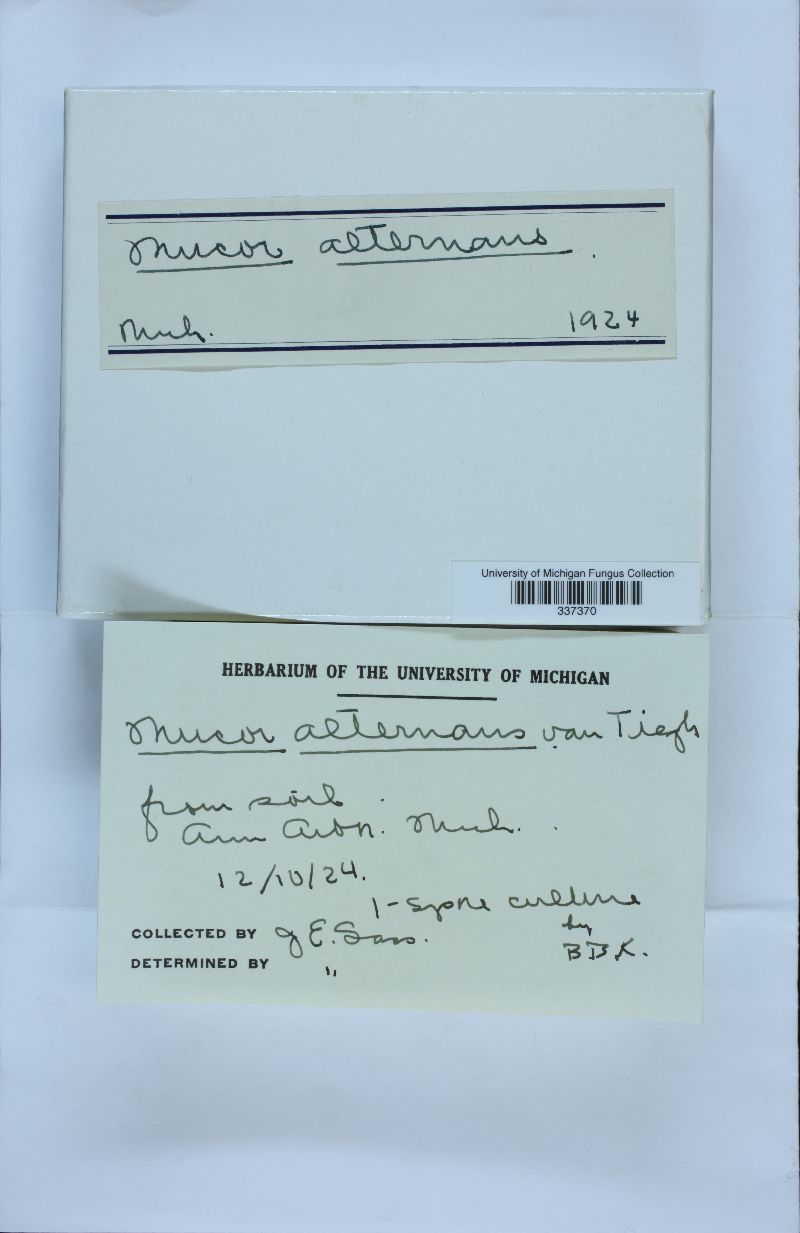 Mucor alternans.
Mich. 1924
University of Michigan Fungus Collection
337370
HERBARIUM OF THE UNIVERSITY OF MICHIGAN
Mucor alternans van Tiegh
from soil.
Ann Arbr. Mich.
12/10/24.
1-spore culture
by
COLLECTED BY J E. Sass.
BBK.
DETERMINED BY "